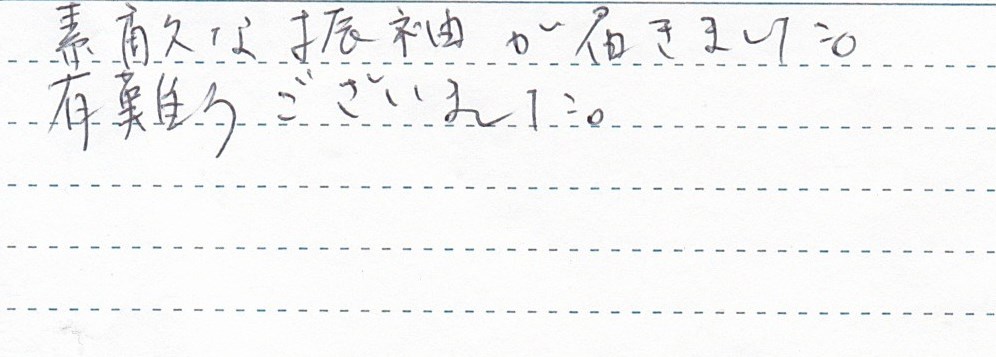 素敵な振袖が届きました。
有難うございました。